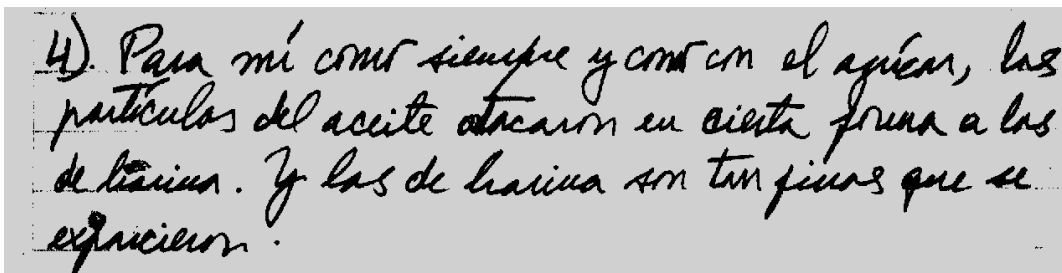 4). Para mí como siempre y como con el azúcar, las
partículas del aceite atacaron en cierta forma a las
de harina. Y las de harina son tan finas que se
esparcieron.